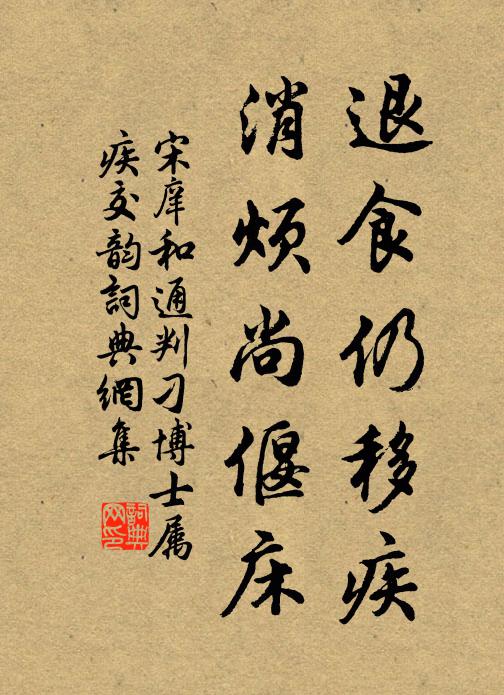 退食仍移疾
消烦尚偃床
宋庠和通判刁博士属
疾交韵词典网集
词典网印